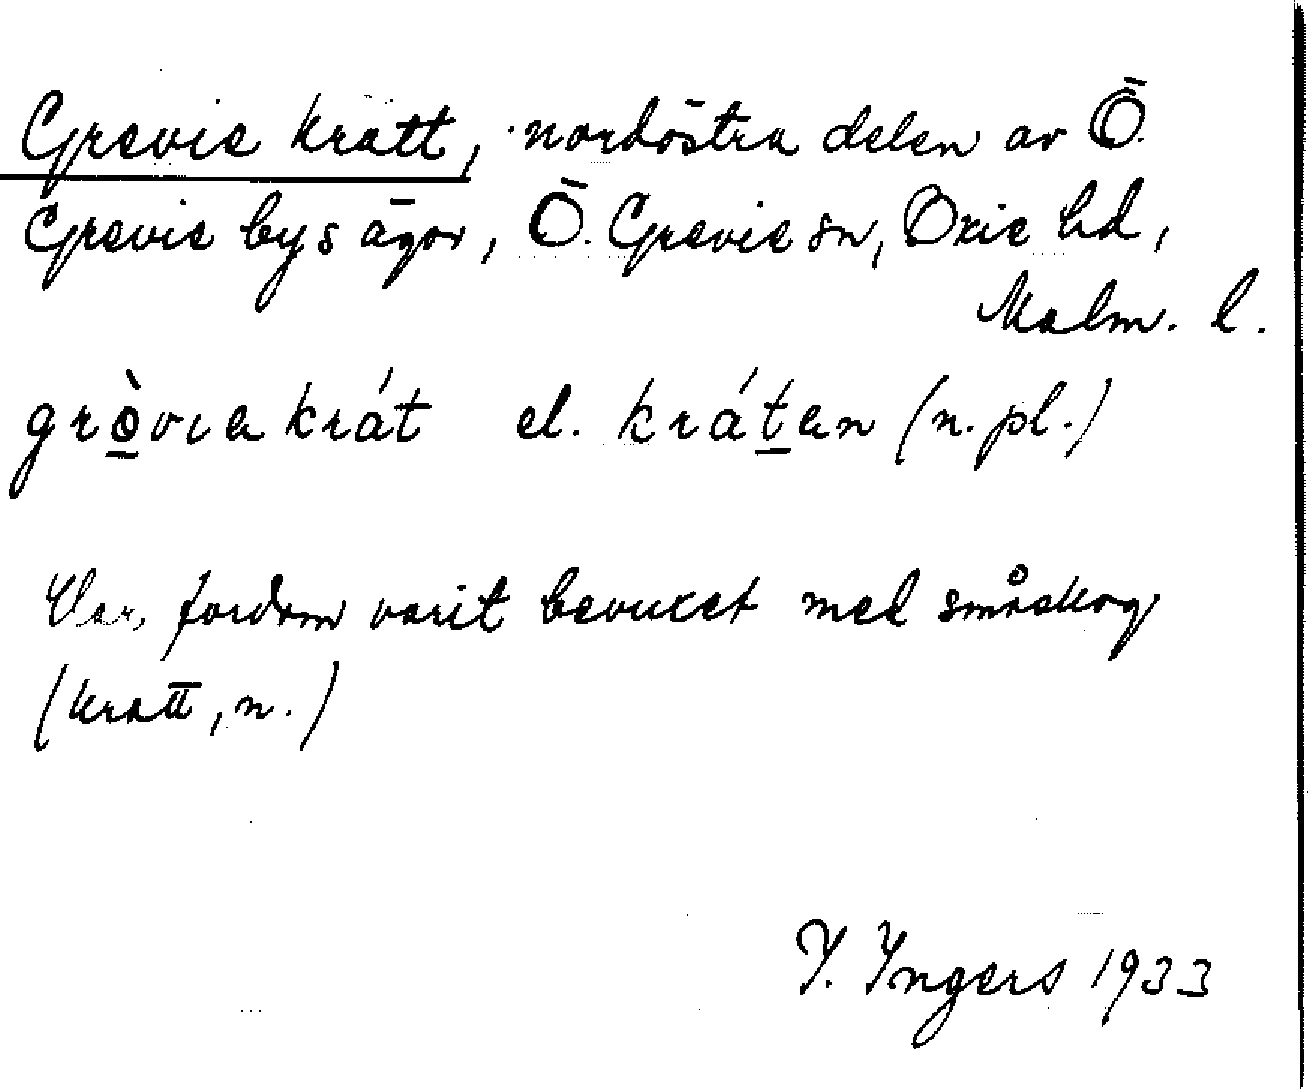 Grevie kratt, nordöstra delen av Ö.
Grevie bys ägor, Ö. Grevie sn, Oxie hd,
Malm. l.
grò̱vıa krát el. kráṯan (n. pl.)
Har fordom varit bevuxet med småskog
(kratt, n.)
I. Ingers 1933